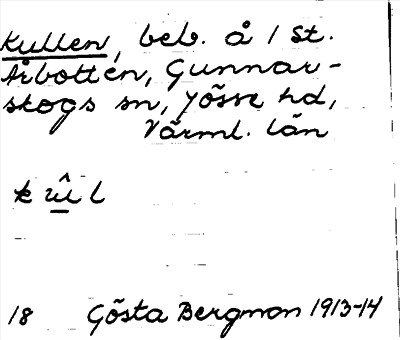 Kullen, beb. å 1 st.
Årbotten, Gunnar-
skogs sn, Jösse hd,
Värml. län
k û l
18 Gösta Bergman 1913-14